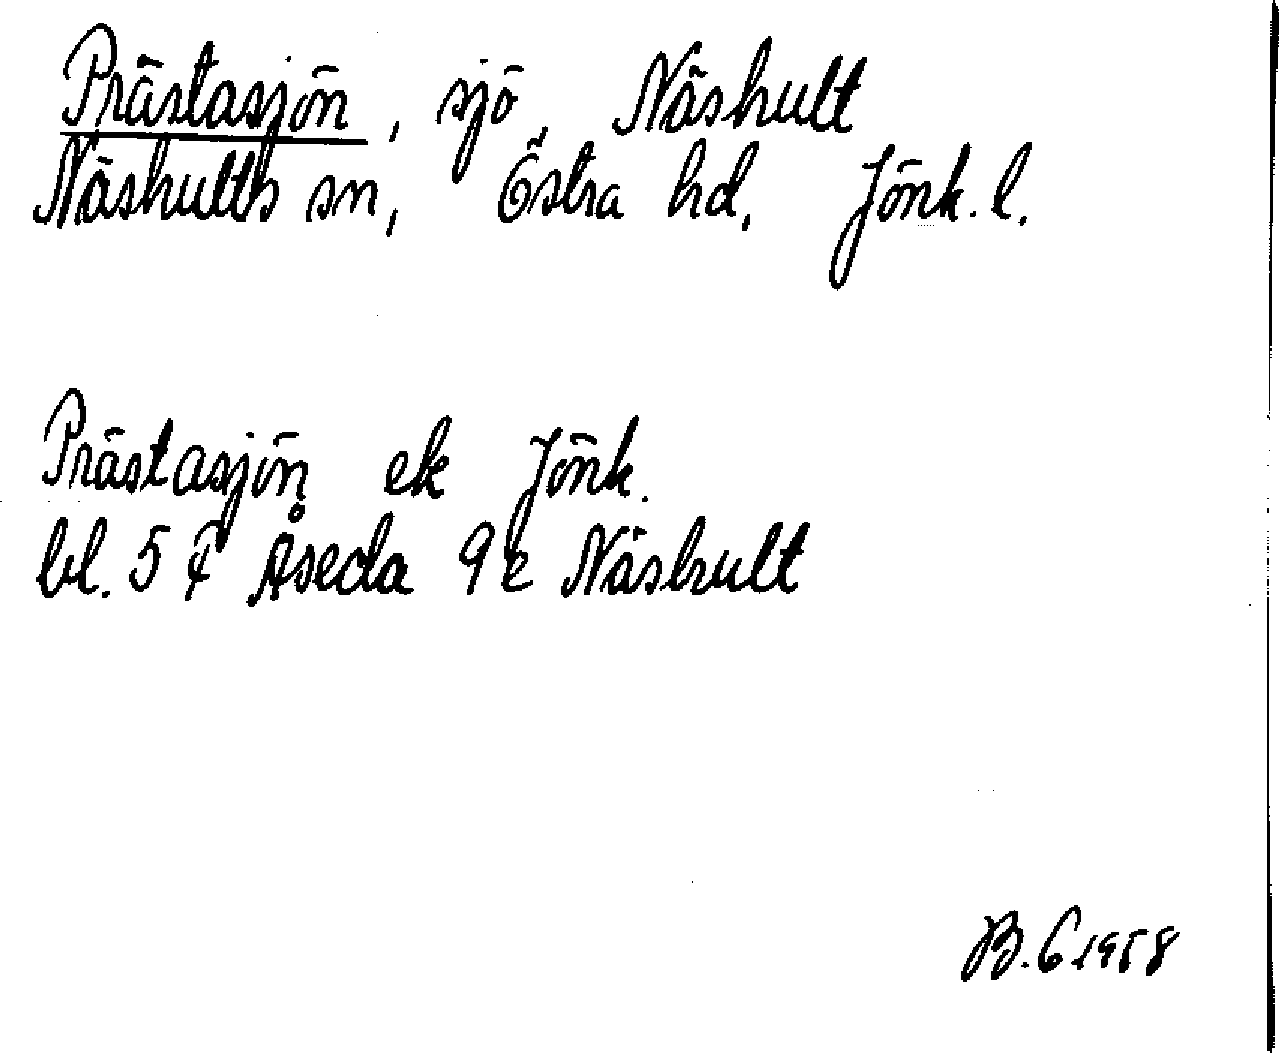 Prästasjön, sjö, Näshult
Näshults sn, Östra hd, Jönk. l.
Prästasjön ek Jönk.
bl. 5 F Åseda 9e Näshult
B. G 1958